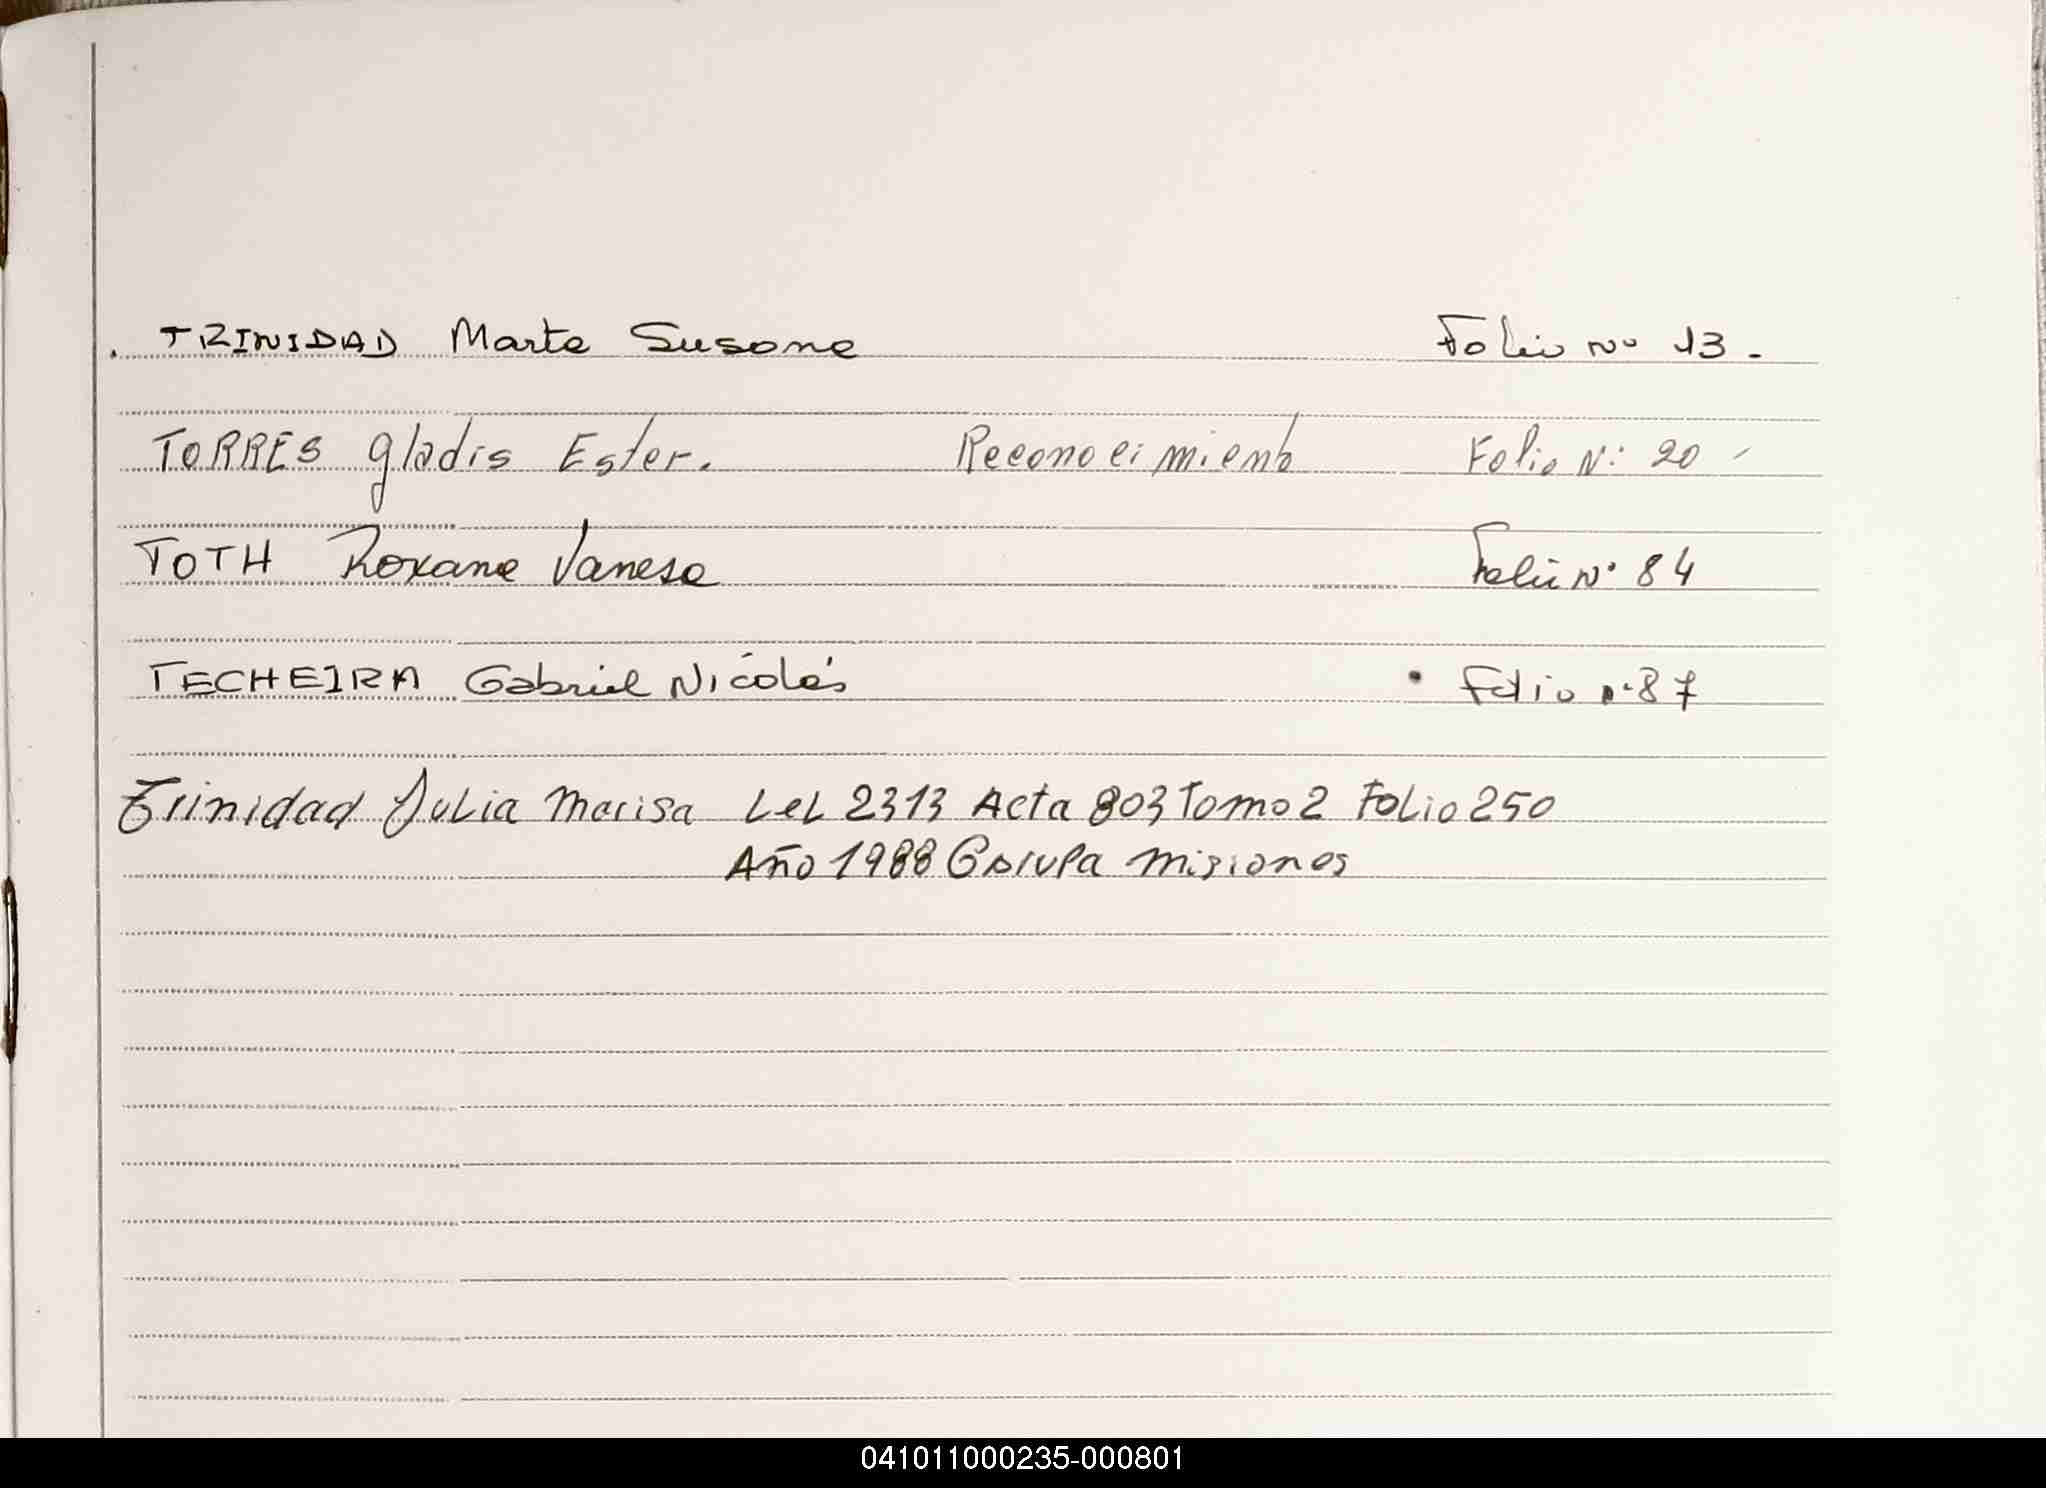 . TRINIDAD Marta Susana Folio Nº 13.
TORRES Gladis Ester. Reconocimiento Folio Nº: 20 -
TOTH Roxana Vanesa Folio Nº 84
TECHEIRA Gabriel Nicolás • Folio nº 87
Trinidad Julia Marisa Lel 2313 Acta 803 Tomo 2 Folio 250
Año 1988 Garupa Misiones
041011000235-000801